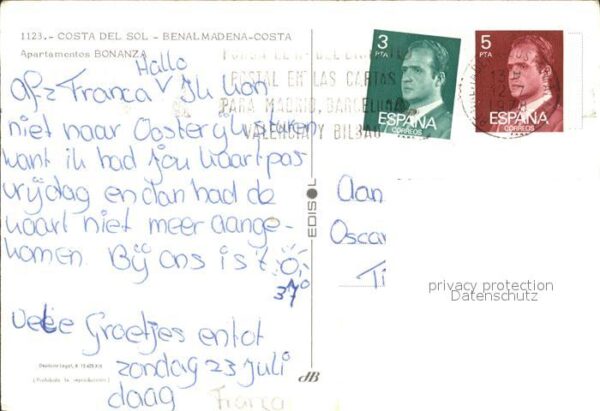 1123.- COSTA DEL SOL - BENALMADENA-COSTA
Apartamentos BONANZA
Hallo
Afz Franca Ik kon
niet naar Oosterijk sturen
want ik had jou kaart pas
vrijdag en dan had de
kaart niet meer aange-
komen Bij ons is 't
37°
vele Groetjes en tot
zondag 23 juli
daag Franca
Deposito Legal,
(Prohibida la reproducción)
EDISOL
dB
POSTAL EN LAS CARTAS
PARA MADRID, BARCELONA
VALENCIA Y BILBAO
3
PTAS
ESPAÑA
CORREOS
5
PTAS
ESPAÑA
CORREOS
Aan
Oscar
Ti
privacy protection
Datenschutz